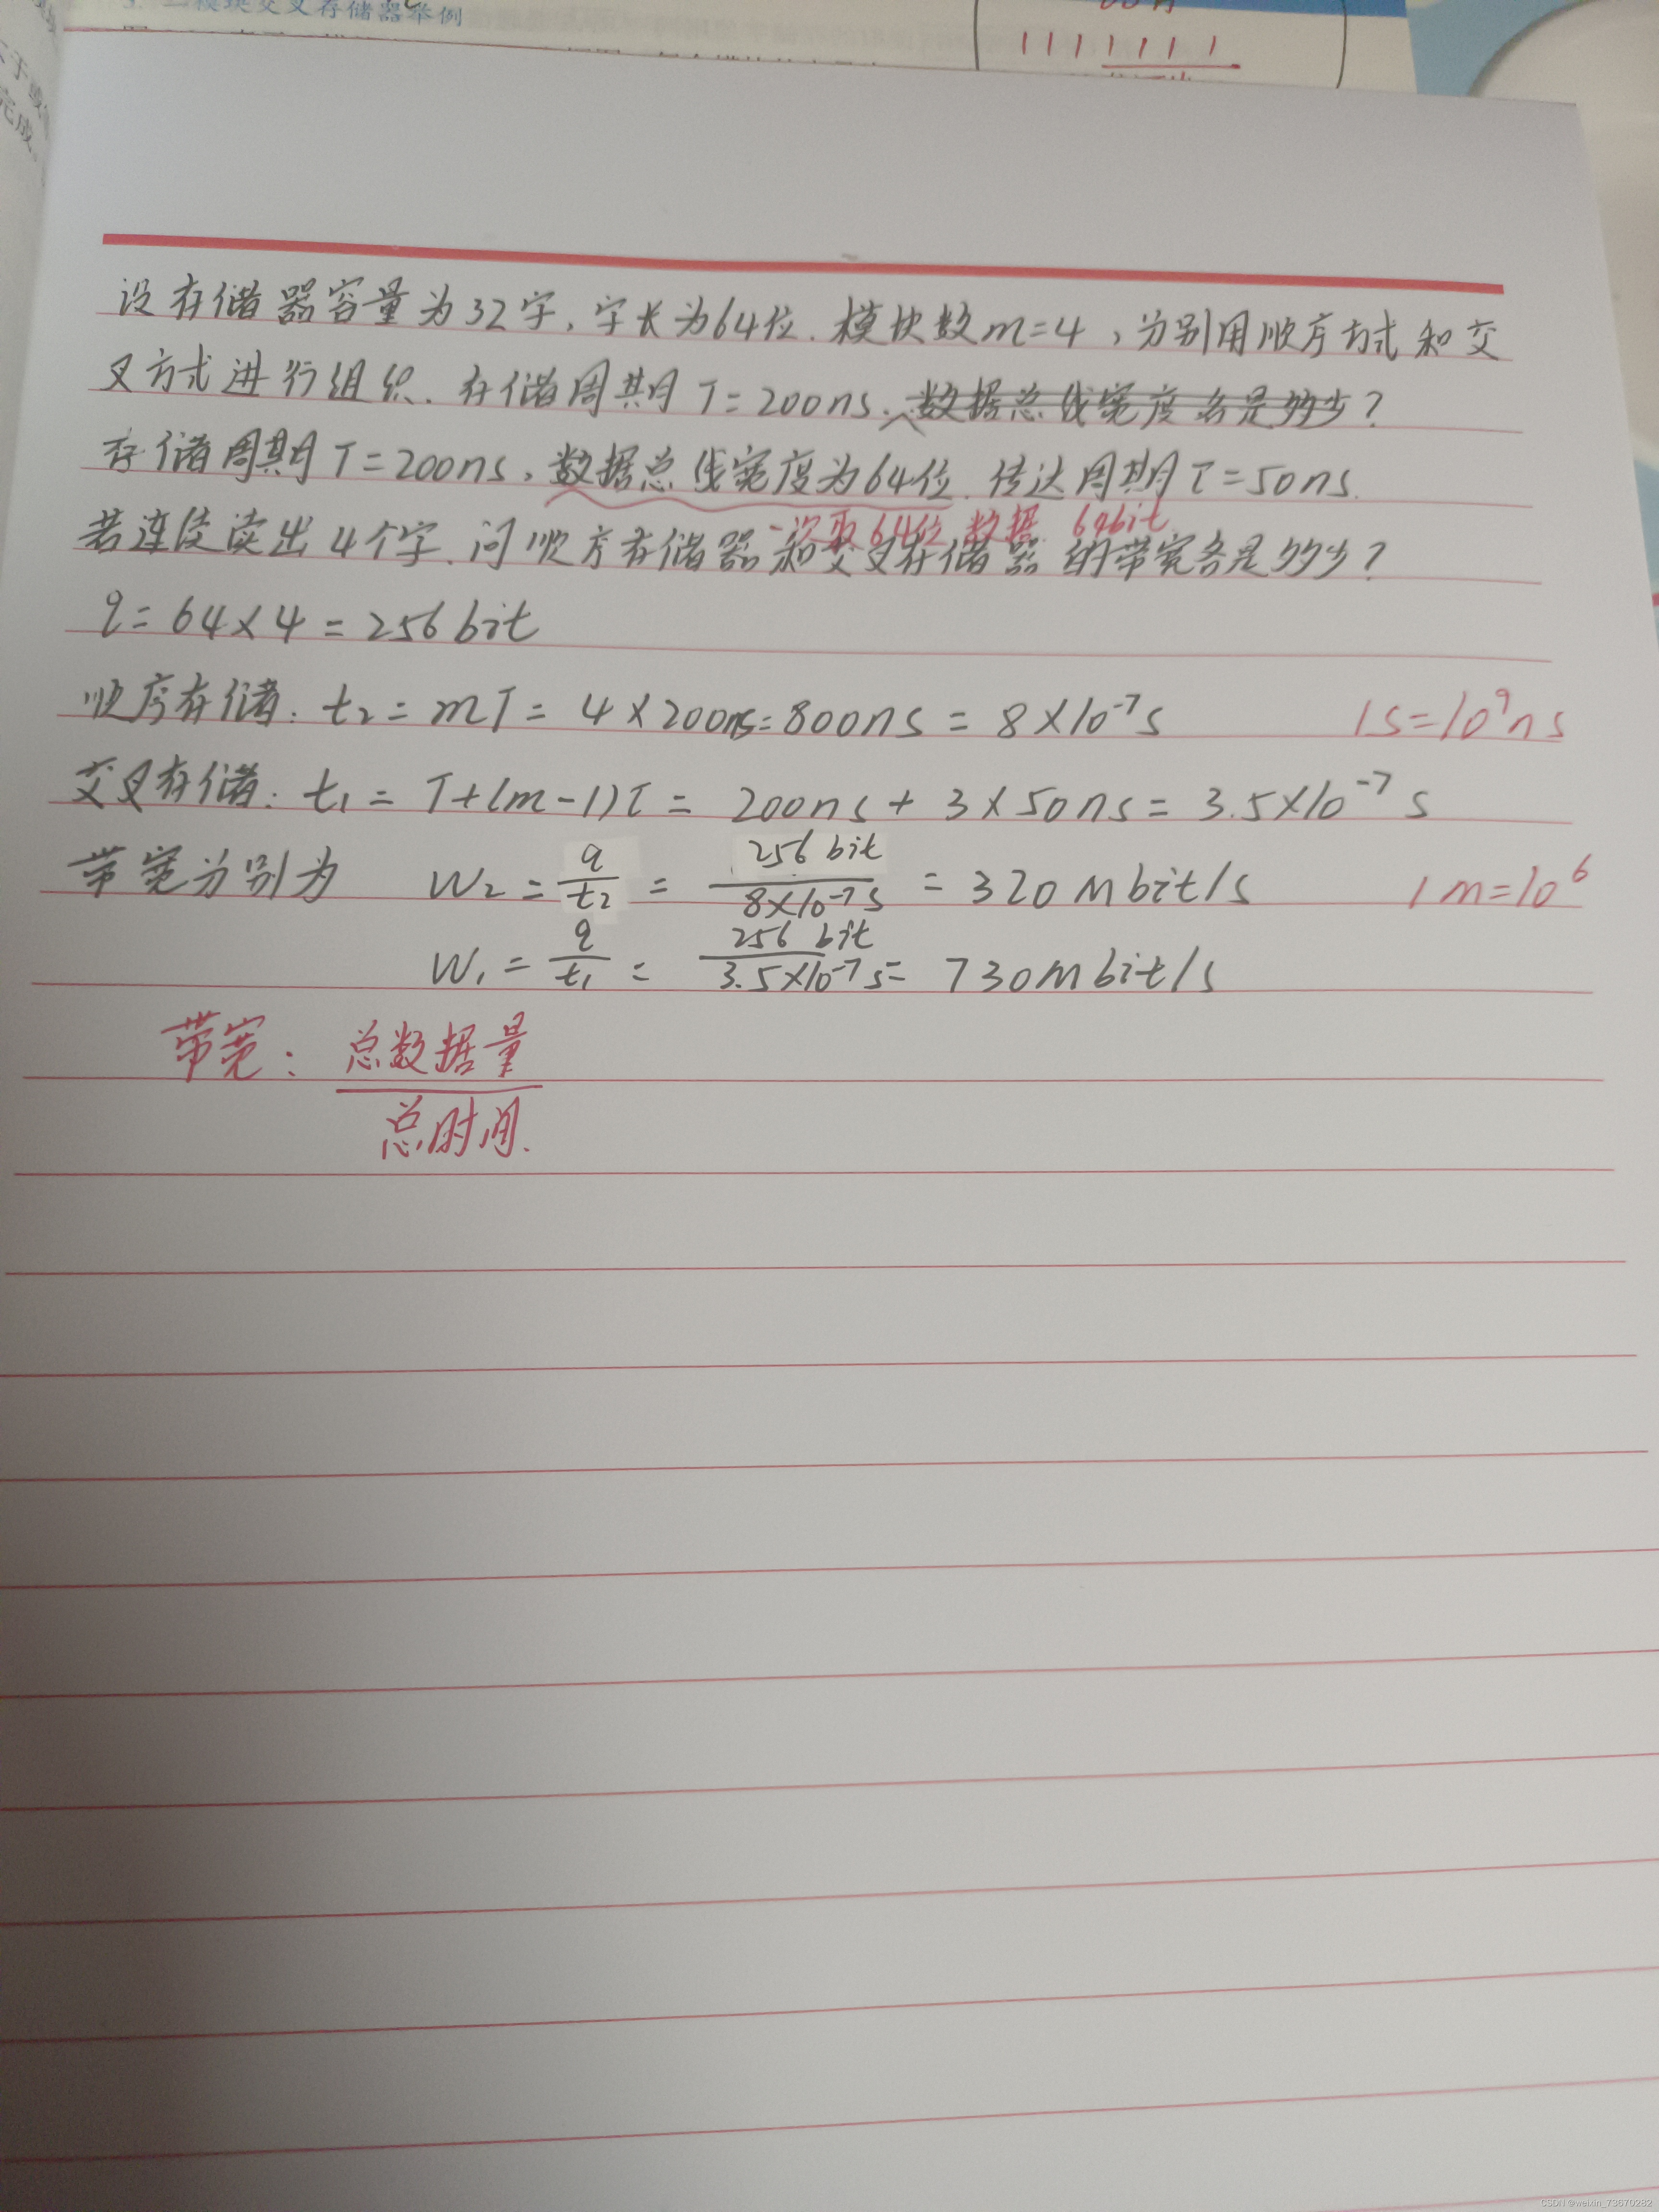 模块交叉存储器举例
1111111
完成。
设存储器容量为32字,字长为64位.模块数m=4,分别用顺序方式和交
叉方式进行组织.存储周期T=200ns.数据总线宽度各是多少?
存储周期T=200ns,数据总线宽度为64位.传达周期τ=50ns.
一次取64位数据 64bit
若连续读出4个字.问顺序存储器和交叉存储器的带宽各是多少?
q=64×4=256bit
顺序存储:t₂=mT=4×200ns=800ns=8×10⁻⁷s 1s=10⁹ns
交叉存储:t₁=T+(m-1)τ=200ns+3×50ns=3.5×10⁻⁷s
带宽分别为 W₂=q/t₂=256bit/8×10⁻⁷s=320Mbit/s 1m=10⁶
W₁=q/t₁=256bit/3.5×10⁻⁷s=730Mbit/s
带宽:总数据量
总时间.
CSDN @weixin_73670282